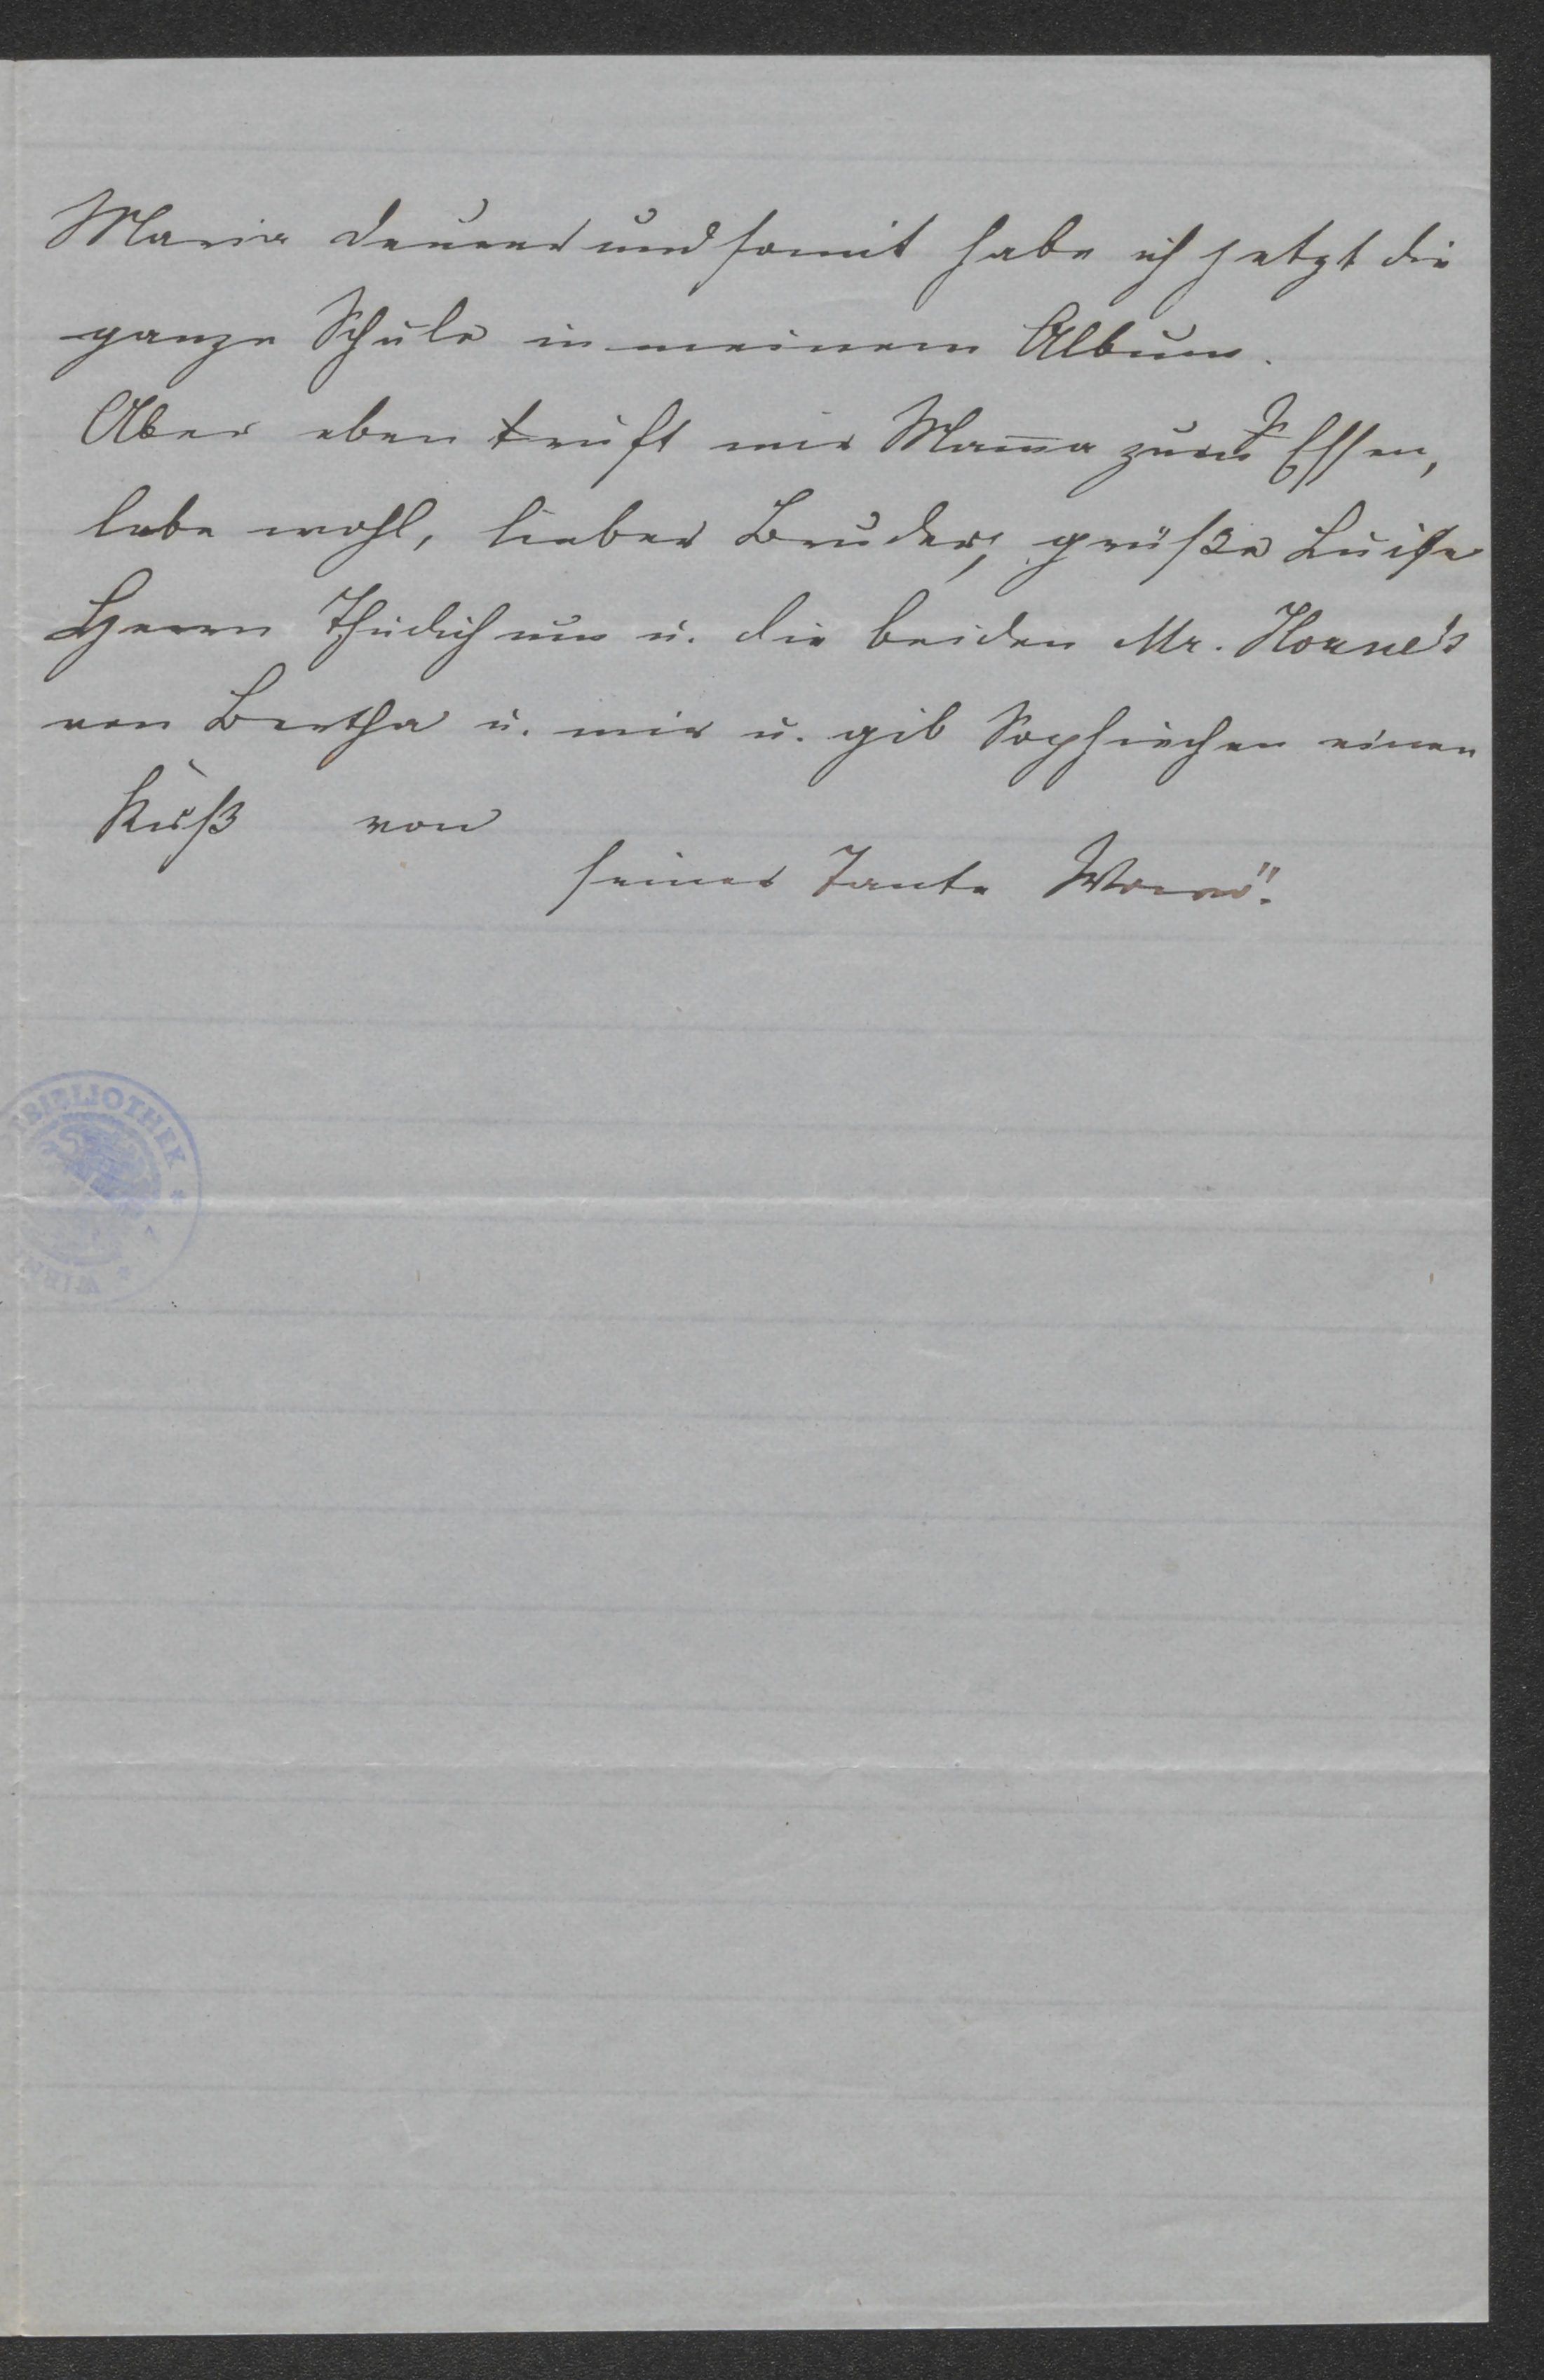 Maria Deurer und somit habe ich jetzt die
ganze Schule in meinem Album.
Aber eben ruft mir Mama zum Essen,
lebe wohl, lieber Bruder, grüße Luise
Herrn Thudichum u. die beiden Mr. Horne's
von Bertha u. mir u. gib Sophiechen einen
Kuß von
seiner Tante
BIBLIOTHEK
WIEN